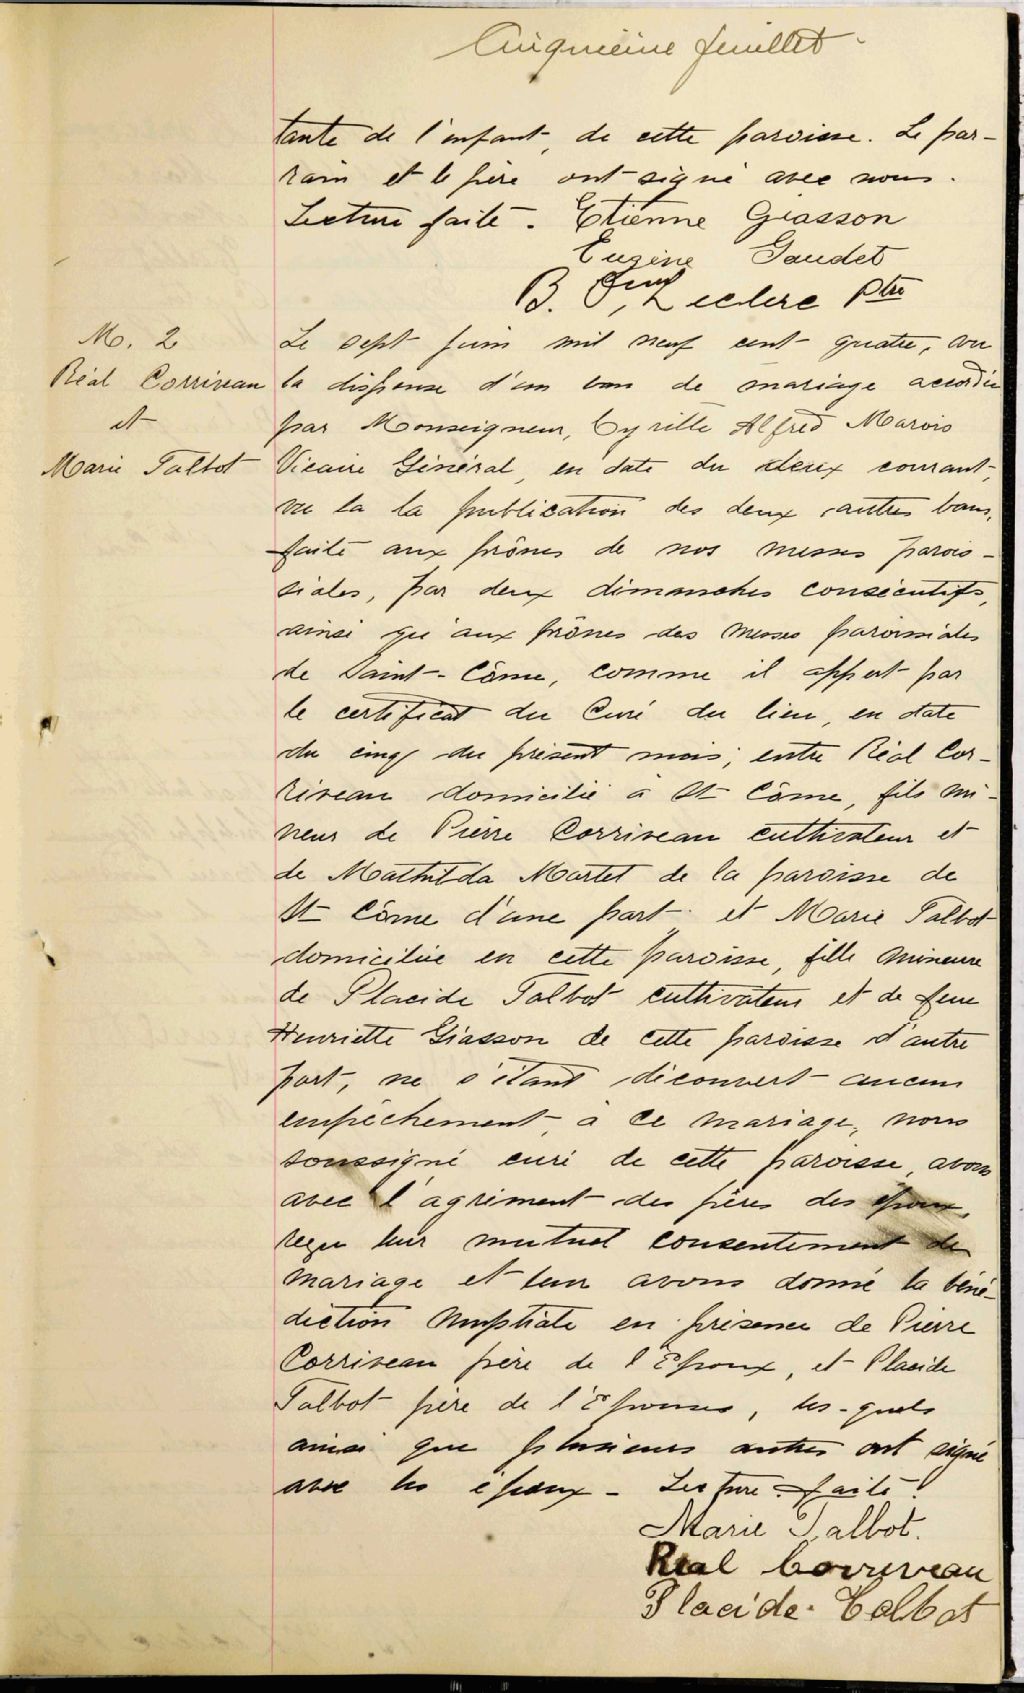 Cinquième feuillet
tante de l'enfant, de cette paroisse. Le par-
rain et le père ont signé avec nous.
Lecture faite. Etienne Giasson
Eugène Gaudet
B. Leclerc Ptre
M. 2
Réal Corriveau
et
Marie Talbot
Le sept juin mil neuf cent quatre, vu
la dispense d'un ban de mariage accordée
par Monseigneur, Cyrille Alfred Marois
Vicaire Général, en date du deux courant,
vu la la publication des deux autres bans,
faite aux prônes de nos messes parois-
siales, par deux dimanches consécutifs,
ainsi qu'aux prônes des messes paroissiales
de Saint-Côme, comme il appert par
le certificat du Curé du lieu, en date
du cinq du présent mois; entre Réal Cor-
riveau domicilié à St Côme, fils mi-
neur de Pierre Corriveau cultivateur et
de Mathilda Martel de la paroisse de
St Côme d'une part; et Marie Talbot
domiciliée en cette paroisse, fille mineure
de Placide Talbot cultivateur et de feue
Henriette Giasson de cette paroisse d'autre
part, ne s'étant découvert aucun
empêchement à ce mariage, nous
soussigné curé de cette paroisse, avons
avec l'agrément des pères des époux,
reçu leur mutuel consentement de
mariage et leur avons donné la béné-
diction nuptiale en présence de Pierre
Corriveau père de l'Epoux, et Placide
Talbot père de l'Epouse, les-quels
ainsi que plusieurs autres ont signé
avec les époux - Lecture faite.
Marie Talbot.
Real Corriveau
Placide Talbot